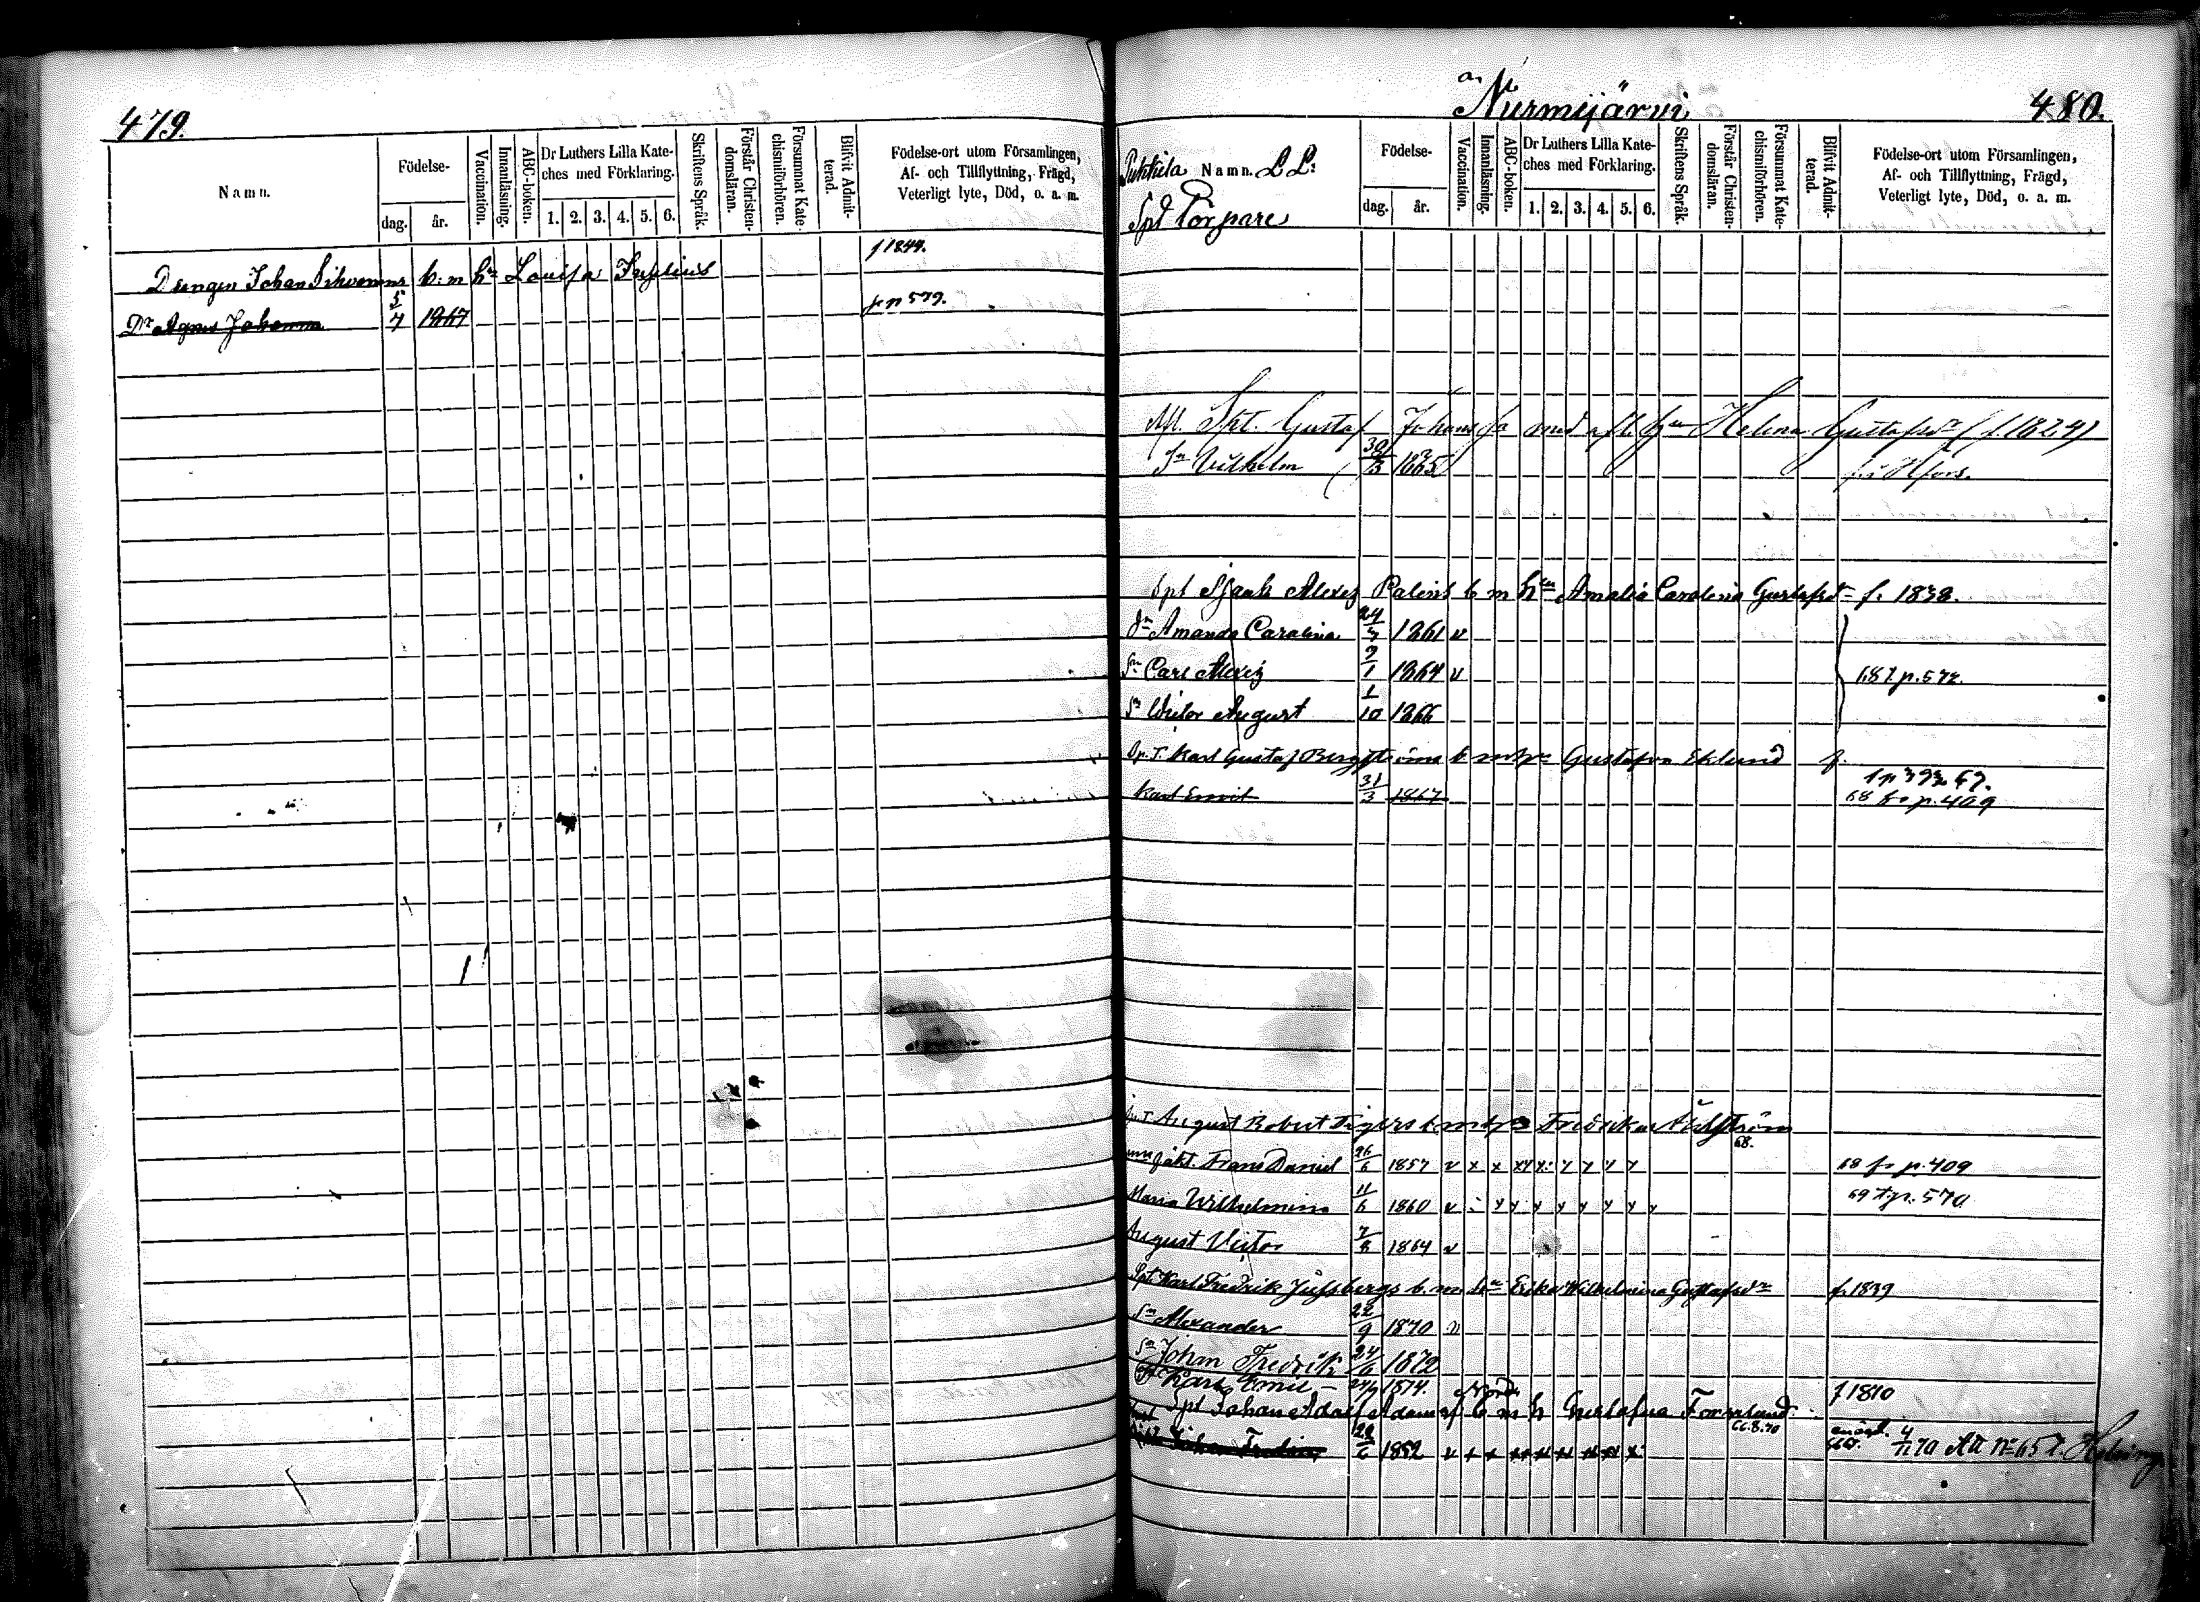 479.
Namn.
Födelse-
dag. år.
Vaccination.
Innanläsning.
ABC-boken.
Dr Luthers Lilla Kate-
ches med Förklaring.
1. 2. 3. 4. 5. 6.
Skriftens Språk.
Förstår Christen-
domsläran.
Försummat Kate-
chismiförhören.
Blifvit Admit-
terad.
Födelse-ort utom Församlingen,
Af- och Tillflyttning, Frägd,
Veterligt lyte, Död, o. a. m.
Drengen Johan b: m hn Lovisa f 1844.
Dr Agnes Johanna 5/7 1867 p 579.
Nurmijärvi
480.
Namn. LL:
Spt Torpare
Födelse-
dag. år.
Vaccination.
Innanläsning.
ABC-boken.
Dr Luthers Lilla Kate-
ches med Förklaring.
1. 2. 3. 4. 5. 6.
Skriftens Språk.
Förstår Christen-
domsläran.
Försummat Kate-
chismiförhören.
Blifvit Admit-
terad.
Födelse-ort utom Församlingen,
Af- och Tillflyttning, Frägd,
Veterligt lyte, Död, o. a. m.
Afl. Spt. Gustaf Johans med Helena Gustafsdr (f. 1824)
Sn Vilhelm 30/3 1865 Hfors.
Spt Alexej Palins b m hn Amalia Carolina Gustafsd f. 1838.
Dr Amanda Carolina 24/7 1861 v
Sn Carl Alexej 9/1 1864 v 68 p. 572.
Sn Victor August 1/10 1866
Sp. T. Karl Gustaf Bergströms b m Gustafva Eklund f.
Karl Emil 31/3 1867 68 p. 409
August Robert b. m Fredrika
68.
Frans Daniel 26/6 1857 v x x 68 p. 409
Maria Wilhelmina 11/6 1860 v 69 p. 570
August Victor 7/8 1864 v
Spt Karl Fredrik b. m. hn Erika Wilhelmina Gustafsdr f. 1839
Sn Alexander 22/9 1870 v
Sn John Fredrik 24/6 1872
Karl Emil 1874.
Spt Johan Adolf b m h Gustafva f 1810
1852 v x x 4/11 70 Att No 65